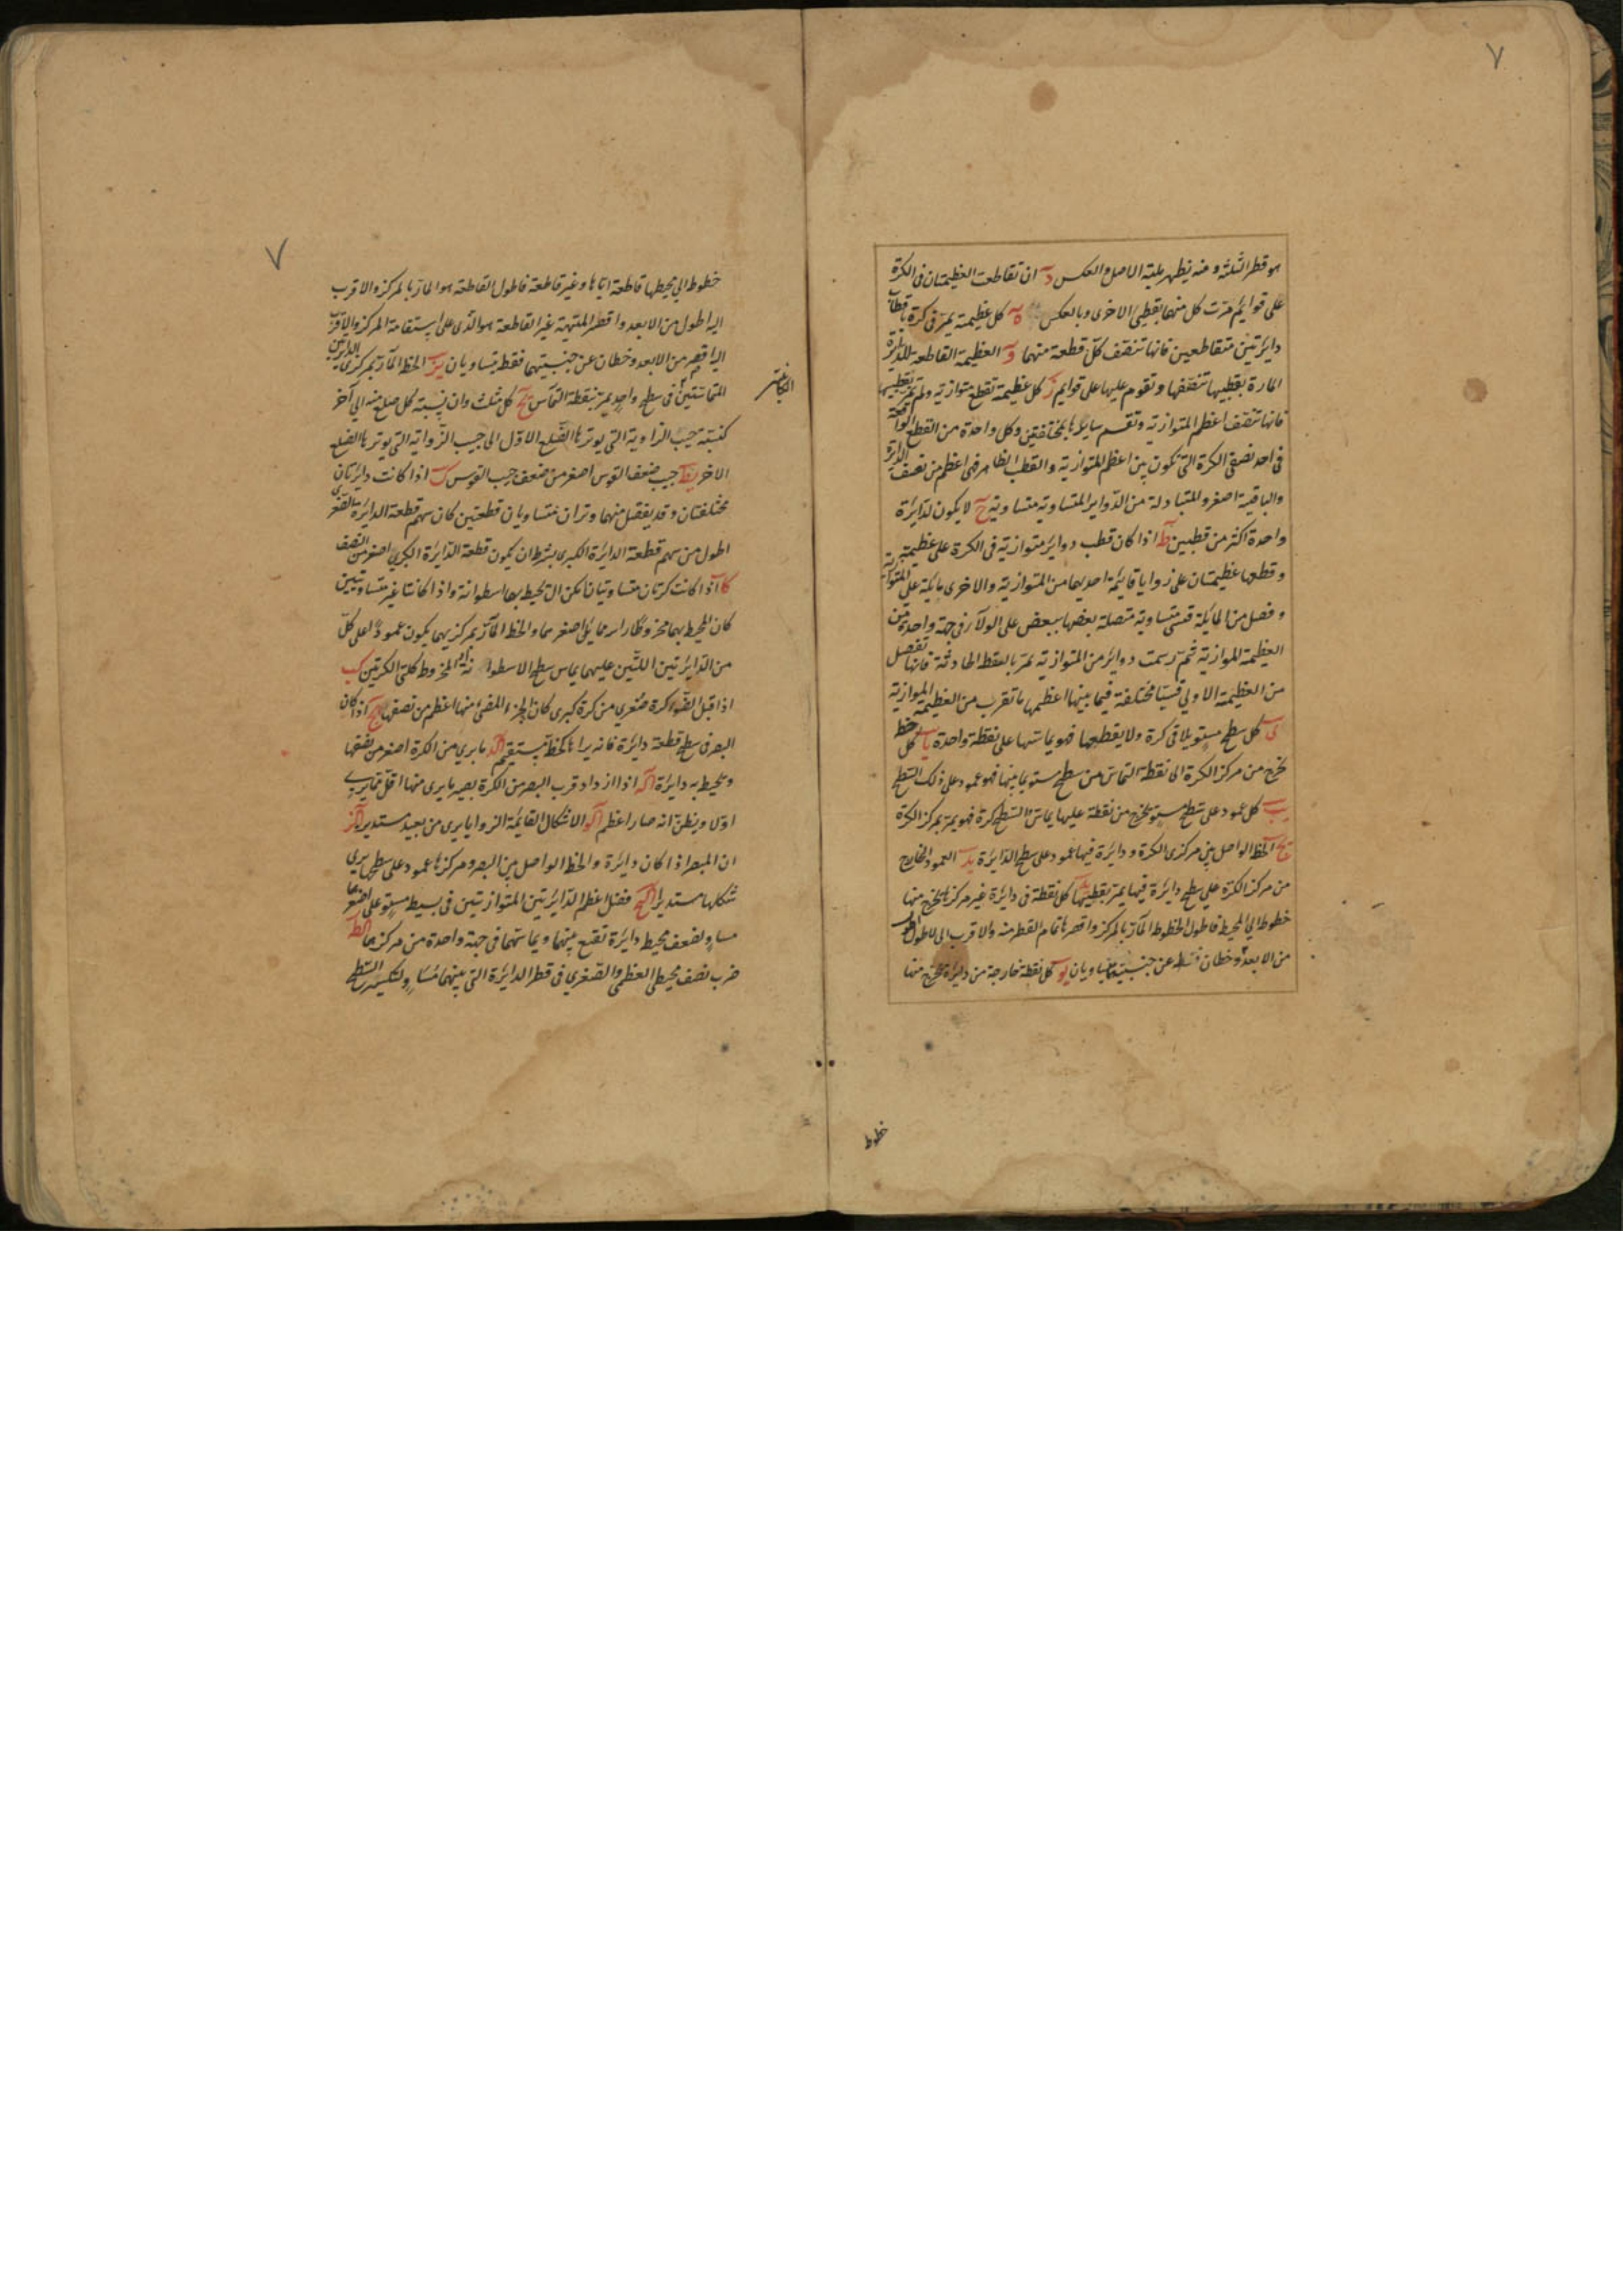 ٧
هو قطر الثلثة و منه يظهر علية الاصل والعكس د ان تقاطعت العظيمتان فى الكرة
على قوايم مرّت كل منهما بقطبى الاخرى وبالعكس ه كل عظيمة يمر فى كرة باقطاب
دايرتين متقاطعين فانها تنصف كل قطعة منهما و العظيمة القاطعة للدايرة
المارة بقطبيها تنصفها وتقوم عليها على قوايم ز كل عظيمة تقطع متوازية ولم تمر بقطبيها
فانها تنصف اعظم المتوازية وتقسم سايرها بمختلفين وكل واحدة من القطع الواقعة
فى احد نصفى الكرة التى تكون بين اعظم المتوازية والقطب الظاهر فهى اعظم من نصف الدايرة
والباقية اصغر والمتبادلة من الدواير المتساوية متساوية ح لا يكون لدايرة
واحدة اكثر من قطبين ط اذا كان قطب دواير متوازية فى الكرة على عظيمة
وقطعها عظيمتان على زوايا قايمة احديهما من المتوازية والاخرى مايلة على المتوازية
وفصل من المايلة قسى متساوية متصلة بعضها ببعض على الولاء فى جهة واحدة من
العظيمة الموازية ثم رسمت دواير من المتوازية تمر بالنقط الحادثة فانها تفصل
من العظيمة الاولى قسيا مختلفة فيما بينها اعظمها ما تقرب من العظيمة الموازية
ى كل سطح مستو يلاقى كرة ولا يقطعها فهو يماسها على نقطة واحدة يا كل خط
يخرج من مركز الكرة الى نقطة التماس من سطح مستو يماسها فهو عمود على ذلك السطح
يب كل عمود على سطح مستو يخرج من نقطة عليها يماس السطح كرة فهو يمر بمركز الكرة
يج الخط الواصل بين مركزى الكرة ودايرة فيها عمود على سطح الدايرة يد العمود الخارج
من مركز الكرة على سطح دايرة فيها يمر بقطبيها يه كل نقطة فى دايرة غير مركزها يخرج منها
خطوط الى المحيط فاطول الخطوط المار بالمركز واقصرها تمام القطر منه والاقرب الى الاطول اطول
من الابعد وخطان فقط عن جنبيه متساويان يو كل نقطة خارجة من دايرة يخرج منها
خطوط
٧
خطوط الى محيطها قاطعة اياها وغير قاطعة فاطول القاطعة هو المار بالمركز والاقرب
اليه اطول من الابعد واقصر المنتهية غير القاطعة هو الذى على استقامة المركز والاقرب
اليه اقصر من الابعد وخطان عن جنبيتهما فقط متساويان يز الخط المار بمركزى الدايرتين
المتماستين فى سطح واحد يمر بنقطة التماس يح كل مثلث فان نسبة كل ضلع منه الى آخر
كنسبة جيب الزاوية التى يوترها الضلع الاول الى جيب الزاوية التى يوترها الضلع
الاخر يط جيب ضعف القوس اصغر من ضعف جيب القوس ك اذا كانت دايرتان
مختلفتان وقد يفصل منهما وتران متساويان قطعتين كان سهم قطعة الدايرة الصغرى
اطول من سهم قطعة الدايرة الكبرى بشرط ان يكون قطعة الدايرة الكبرى اصغر من النصف
كا اذا كانت كرتان متساويتان امكن ان تحيط بهما اسطوانة واذا كانتا غير متساويتين
كان المحيط بهما مخروطا راسه مما يلى اصغرهما والخط المار بمركزيهما يكون عمودا على كل
من الدايرتين اللتين عليهما يماس سطح الاسطوانة او المخروط كلتى الكرتين كب
اذا قبل الضوء كرة صغرى من كرة كبرى كان الجزء المضئ منها اعظم من نصفها كج اذا كان
البصر فى سطح قطعة دايرة فانه يراها كخط مستقيم كد ما يرى من الكرة اصغر من نصفها
ويحيط به دايرة كه اذا ازداد قرب البصر من الكرة يصير ما يرى منها اقل مما يرى
اولا ويظن انه صار اعظم كو الاشكال القايمة الزوايا يرى من بعيد مستديرا كز
ان المبصر اذا كان دايرة والخط الواصل بين البصر ومركزها عمود على سطحها يرى
شكلها مستديرا كح فضل اعظم الدايرتين المتوازيتين فى بسيط مستو على اصغرهما
مساو لضعف محيط دايرة تقع بينهما ويماسهما فى جهة واحدة من مركزهما كط
ضرب نصف محيطى العظمى والصغرى فى قطر الدايرة التى بينهما مساو لتكسير السطح